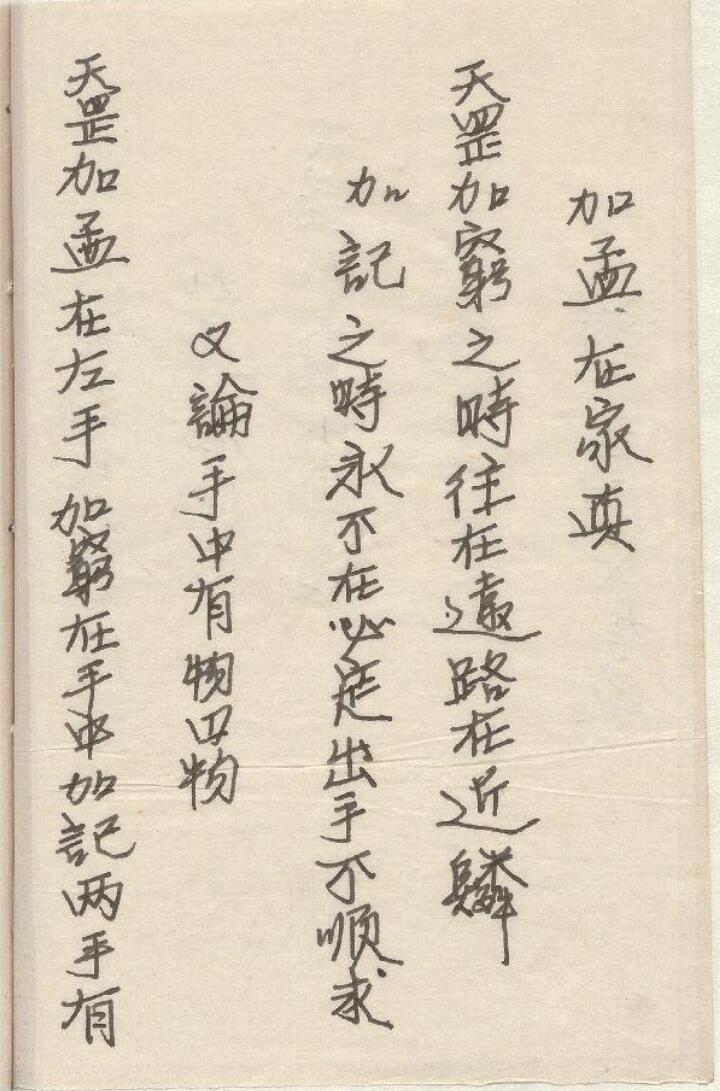 加孟在家真
天罡加窮之時往在遠路在近鄰
加記之時永不在必定出手不順求
又論手中有物四物
天罡加孟在左手加窮在手中加記两手有